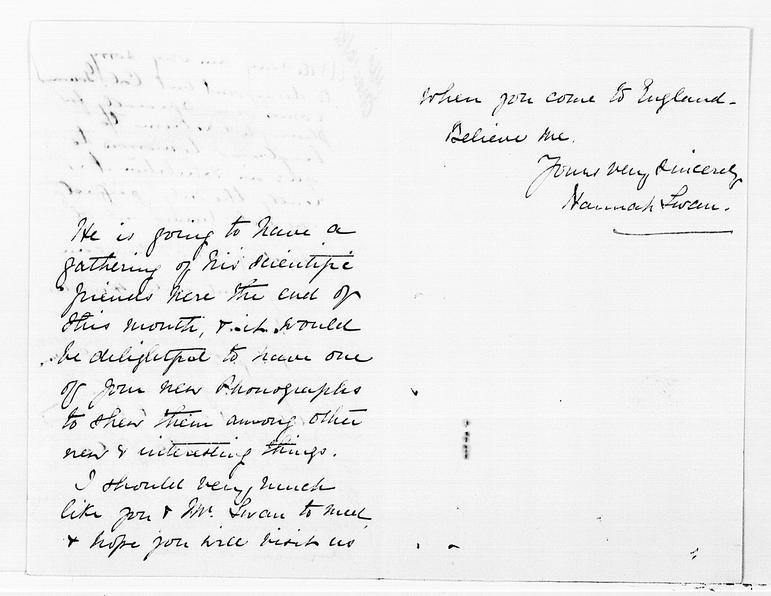 He is going to have a
gathering of his scientific
friends here the end of
this month, & it would
be delightful to have one
of your new Phonographs
to shew them among other
new & interesting things.
I should very much
like you & Mr. Swan to meet
& hope you will visit us
when you come to England -
Believe me.
Yours very sincerely
Hannah Swan.